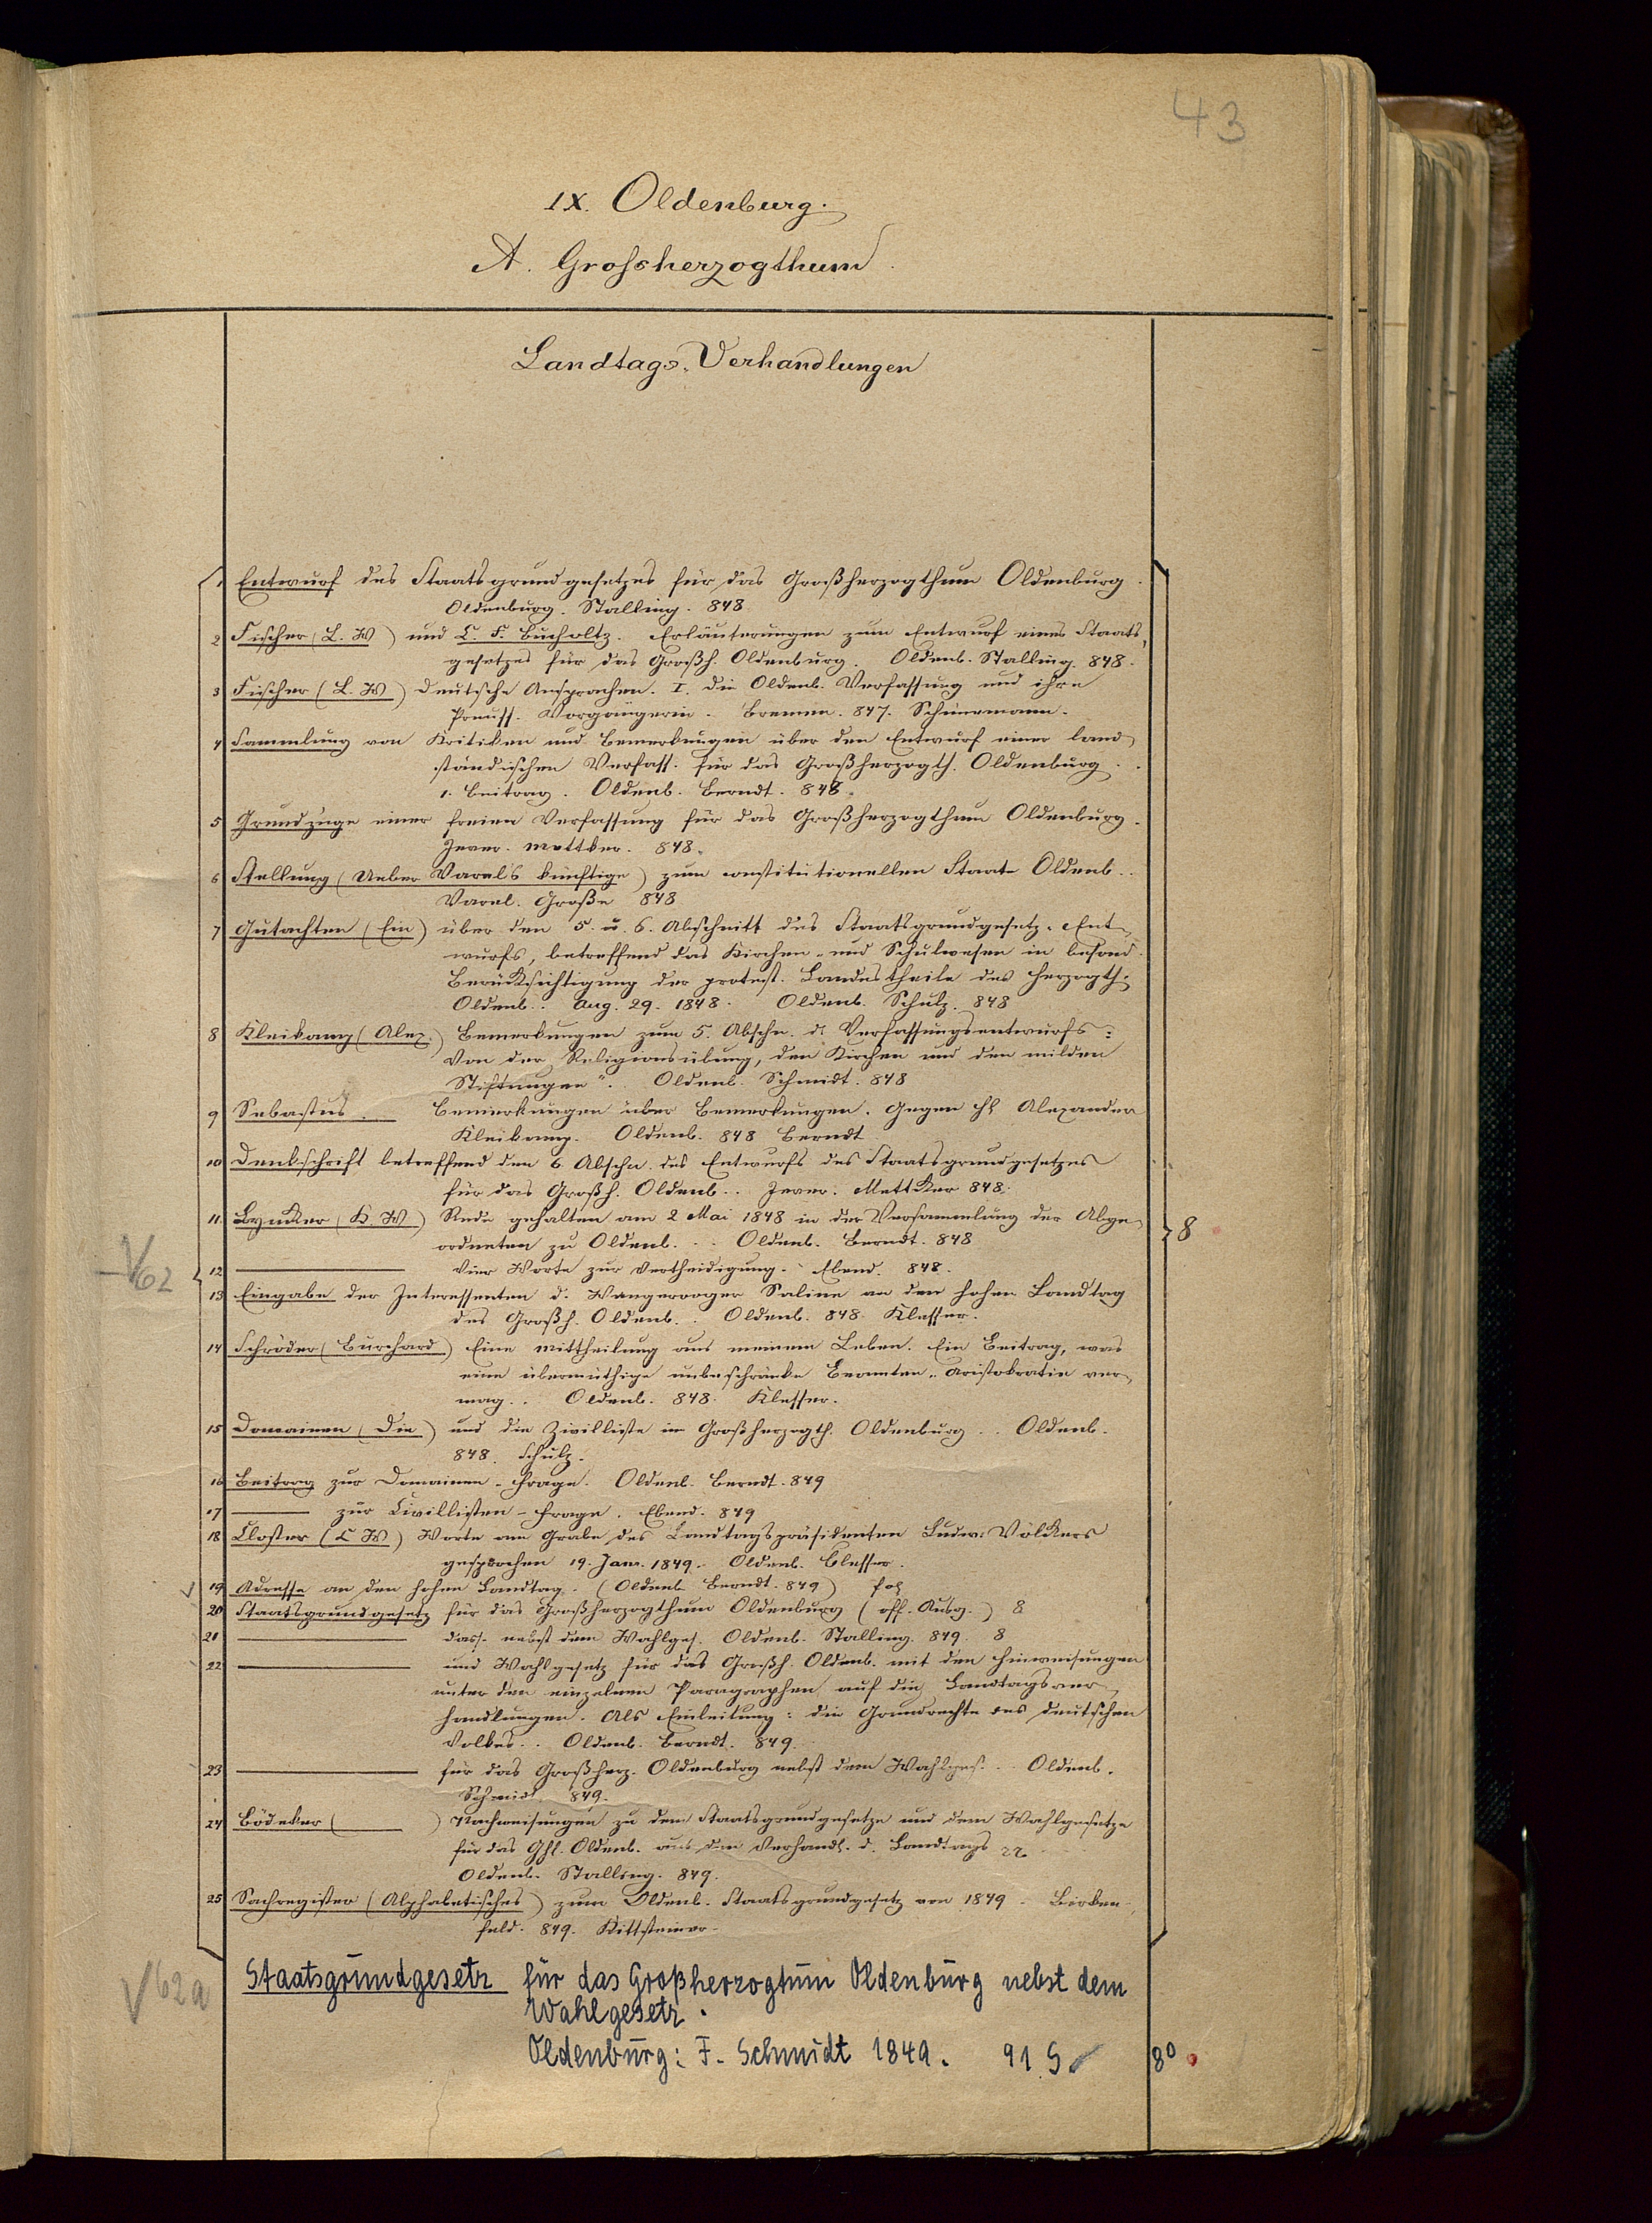 43
IX. Oldenburg.
A. Grossherzogthum
Landtags-Verhandlungen
1 Entwurf des Staatsgrundgesetzes für das Großherzogthum Oldenburg.
Oldenburg. Stalling. 848
2 Fischer (L. W) und C. F. Bucholtz. Erläuterungen zum Entwurf eines Staats-
gesetzes für das Großh. Oldenburg. Oldenb. Stalling. 848.
3 Fischer (L. W) Deutsche Ansprachen. I. die Oldenb. Verfassung und ihre
Preuss. Vorgängerin. Bremen. 847. Schünemann.
4 Sammlung von Kritiken und Bemerkungen über den Entwurf einer land-
ständischen Verfass. für das Großherzogth. Oldenburg.
1. Beitrag. Oldenb. Berndt. 848.
5 Grundzüge einer freien Verfassung für das Großherzogthum Oldenburg.
Jever. Mettker. 848.
6 Stellung (Ueber Varel's künftige) zum constitutionellen Staate Oldenb..
Varel. Große 848
7 Gutachten (Ein) über den 5. u. 6. Abschnitt des Staatsgrundgesetz-Ent-
wurfs, betreffend das Kirchen- und Schulwesen in besond.
Berücksichtigung der protest. Landestheile des Herzogth.
Oldenb.. Aug. 29. 1848. Oldenb. Schulz. 848
8 Kleikamp (Alex.) Bemerkungen zum 5. Abschn. d. Verfassungsentwurfs:
Von der Religionsübung, den Kirchen und den milden
Stiftungen". Oldenb. Schmidt. 848
9 Sebastus. Bemerkungen über Bemerkungen. Gegen H Alexander
Kleikamp. Oldenb. 848 Berndt
10 Denkschrift betreffend den 6. Abschn. des Entwurfs des Staatsgrundgesetzes
für das Großh. Oldenb.. Jever. Mettker 848.
11. Lyncker (K. W) Rede gehalten am 2 Mai 1848 in der Versammlung der Abge-
ordneten zu Oldenb... Oldenb. Berndt. 848
8
V62
12 Vier Worte zur Vertheidigung. Ebend. 848.
13 Eingabe der Interessenten d. Wangerooger Saline an den hohen Landtag
des Großh. Oldenb.. Oldenb. 848. Klesser.
14 Schröder (Burchard) Eine Mittheilung aus meinem Leben. Ein Beitrag, was
eine übermüthige unbeschränkte Beamten-Aristokratie ver-
mag.. Oldenb. 848. Klesser.
15 Domainen (Die) und die Zivilliste im Großherzogth. Oldenburg.. Oldenb.
848. Schulz.
16 Beitrag zur Domainen-Frage. Oldenb. Berndt. 849
17 zur Civillisten-Frage. Ebend. 849
18 Closter (C W) Worte am Grabe des Landtagspräsidenten Ludw. Völkers
gesprochen 19. Jan. 1849. Oldenb. Klesser.
19 Adresse an den hohen Landtag. (Oldenb Berndt. 849) fol
20 Staatsgrundgesetz für das Großherzogthum Oldenburg (off. Ausg.) 8
21 dass. nebst dem Wahlges. Oldenb. Stalling. 849. 8
22 und Wahlgesetz für das Großh. Oldenb. mit den Hinweisungen
unter den einzelnen Paragraphen auf die Landtagsver-
handlungen. Als Einleitung: die Grundrechte des deutschen
Volkes.. Oldenb. Berndt. 849.
23 für das Großherz. Oldenburg nebst dem Wahlges... Oldenb.
Schmidt. 849.
24 Bödeker ( ) Nachweisungen zu dem Staatsgrundgesetze und dem Wahlgesetze
für das Ghl. Oldenb. aus den Verhandl. d. Landtags
Oldenb. Stalling. 849.
25 Sachregister (Alphabetisches) zum Oldenb. Staatsgrundgesetz von 1849. Birken-
feld. 849. Kittsteiner.
V62a
Staatsgrundgesetz für das Großherzogtum Oldenburg nebst dem
Wahlgesetz.
Oldenburg: F. Schmidt 1849. 91 S. 8°